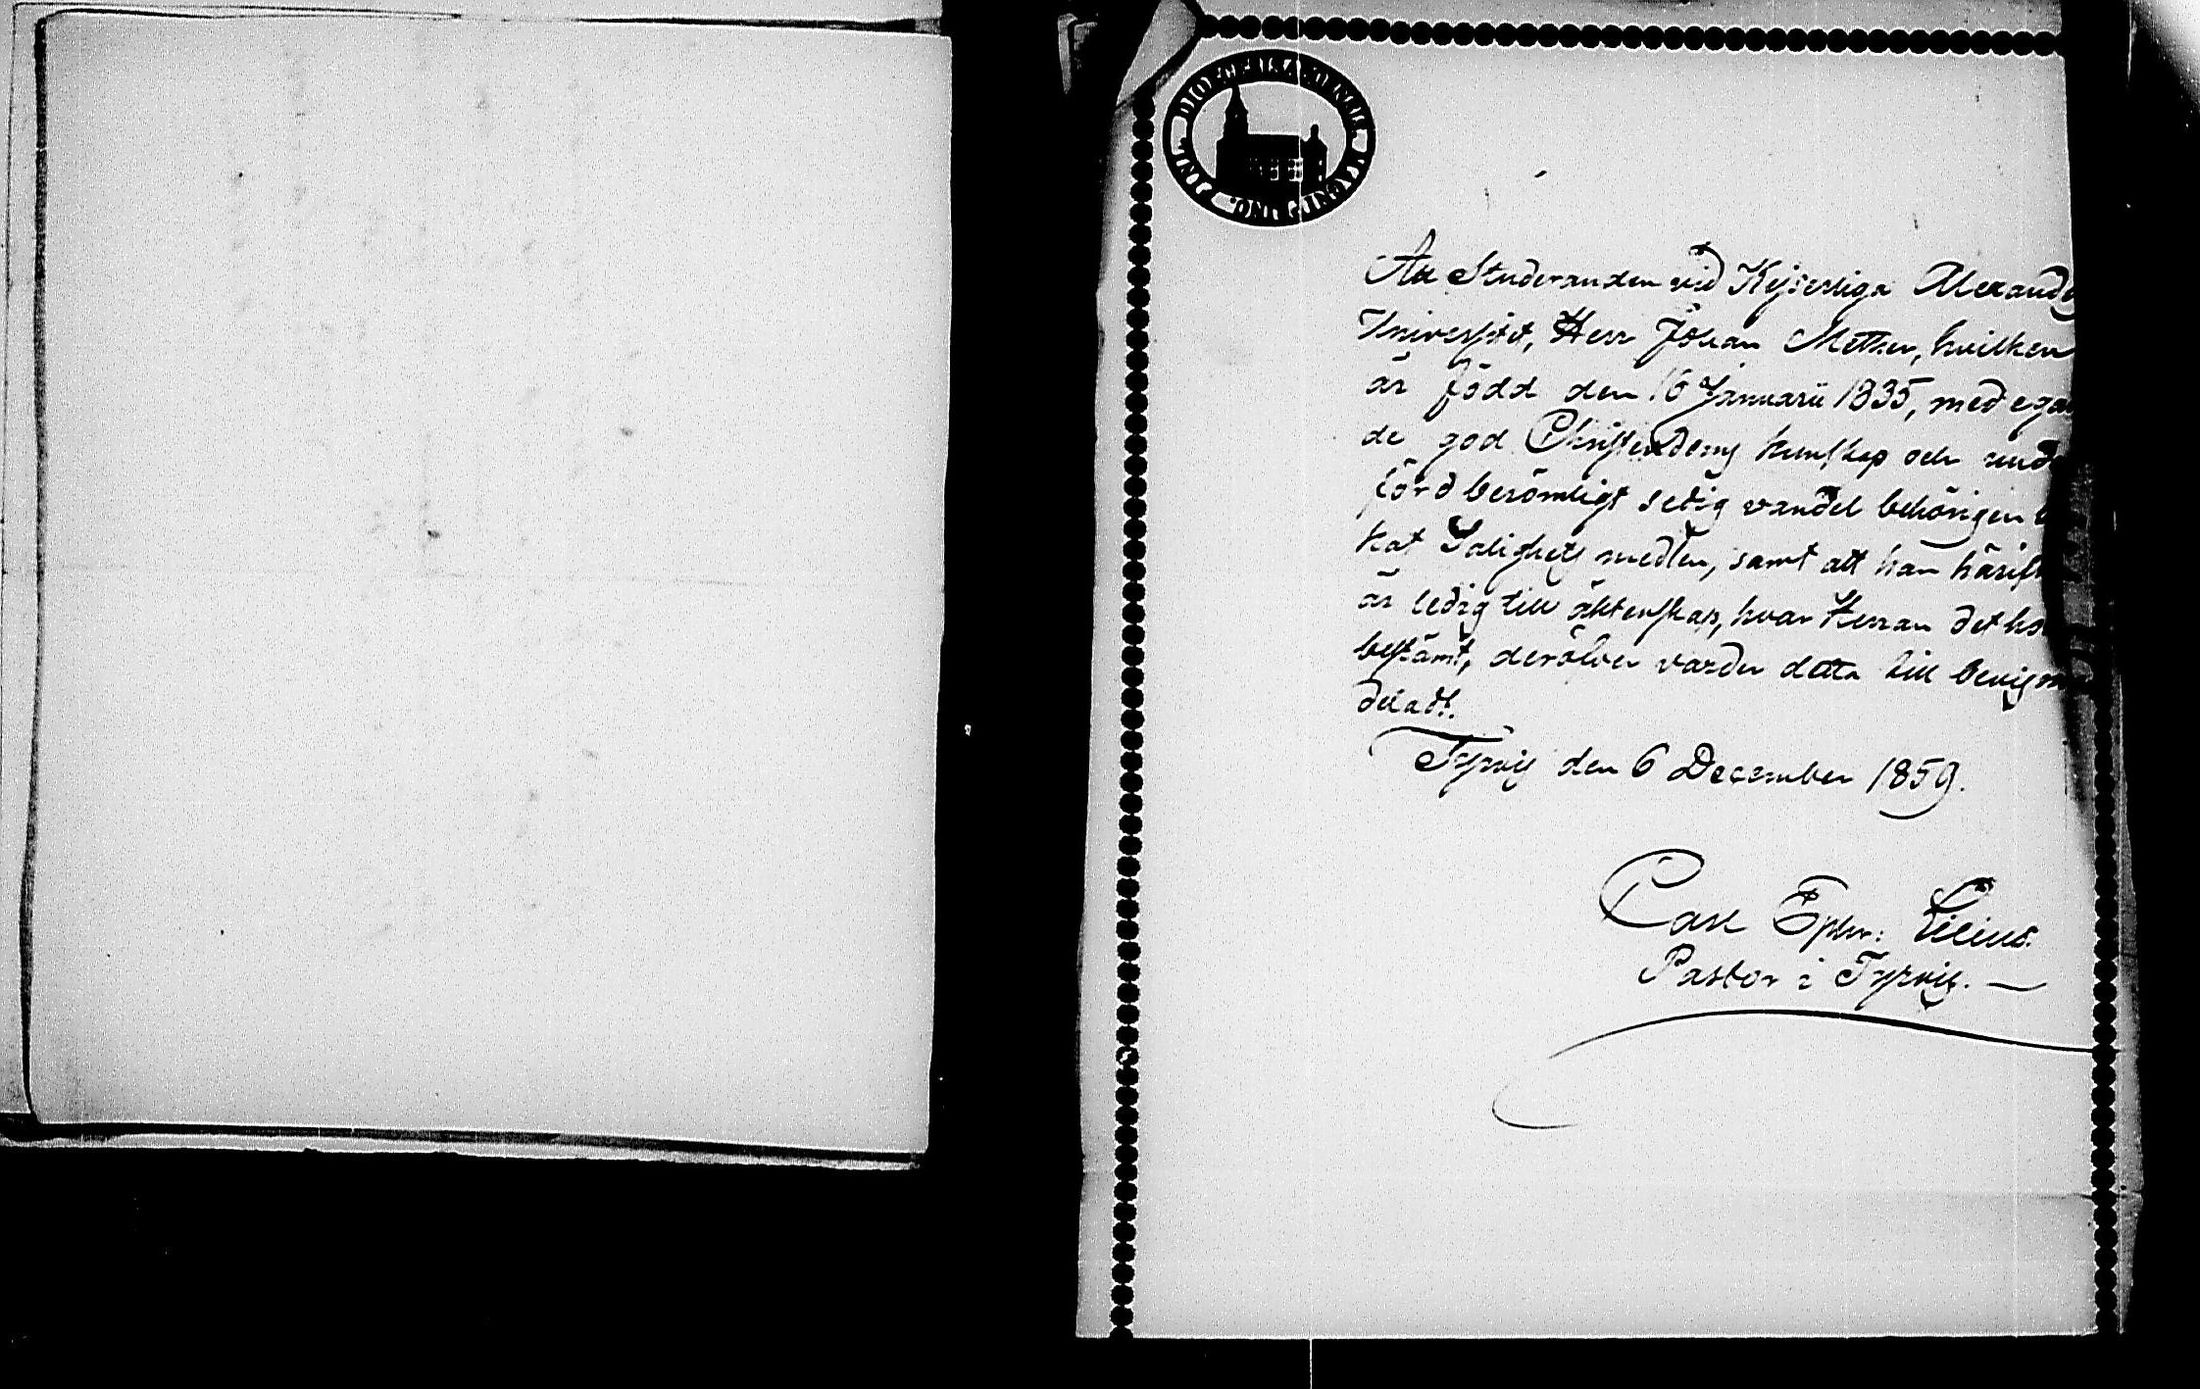 Att Studeranden vid Kejserliga Alexande
Universitet, Herr Johan Mether, hvilken
är född den 16 Januarii 1835, med egan
de god Christendoms kunskap och und
förd berömligt sedig vandel behörigen
kat Salighets medlen, samt att han härifr
är ledig till äktenskap, hvar Herran det ho
bestämt, deröfver varder detta till bevis m
deladt.
Tyrvis den 6 December 1859.
Carl Ephr: Lilius.
Pastor i Tyrvis. —